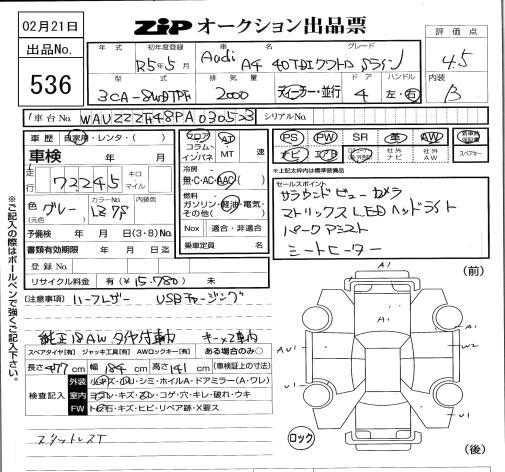 02月21日
ZIP オークション出品票
出品No.
536
年式 初年度登録 車名 グレード
R5年5月 Audi A4 40TDIクワトロ Sライン
型式 排気量 ドア ハンドル
3CA-8WDTPF 2000 ディーラー・並行 4 左・右
評価点
4.5
内装
B
車台No. WAUZZZF48PA030523 シリアルNo.
車歴 自家用・レンタ・( )
車検 年 月
走行 72245 キロ マイル
色 (元色) グレー カラーNo. LZ7S 内装色
予備検 年 月 日(3・8)No.
書類有効期限 年 月 日迄
登録No.
リサイクル料金 有(¥15.780) 未
フロア コラム インパネ
AT MT 速
冷房
無・C・AC・AAC
燃料
ガソリン・軽油・電気・その他( )
Nox 適合・非適合
乗車定員 名
PS PW SR 革 AW
ナビ エアB 社外ナビ 社外AW スペアキー
*上記太枠内は標準装備品
セールスポイント
サラウンドビューカメラ
マトリックスLEDヘッドライト
パークアシスト
シートヒーター
(注意事項) ハーフレザー USBチャージング
純正18AW タイヤ付車内 キー×2車内
スペアタイヤ[有] ジャッキ工具[有] AWロックキー[有] ある場合のみ○
長さ 477 cm 幅 184 cm 高さ 141 cm (車検証上の寸法)
検査記入
外装 小キズ・凹・シミ・ホイルA・ドアミラー(A・ワレ)
室内 ヨゴレ・キズ・スレ・コゲ・穴・キレ・破れ・ウキ
FW トビ石・キズ・ヒビ・リペア跡・X要ス
スタットレスT
※ご記入の際はボールペンで強くご記入下さい。
(前)
A1
A1
A1
AU1
W2
U1
U1
ロック
(後)